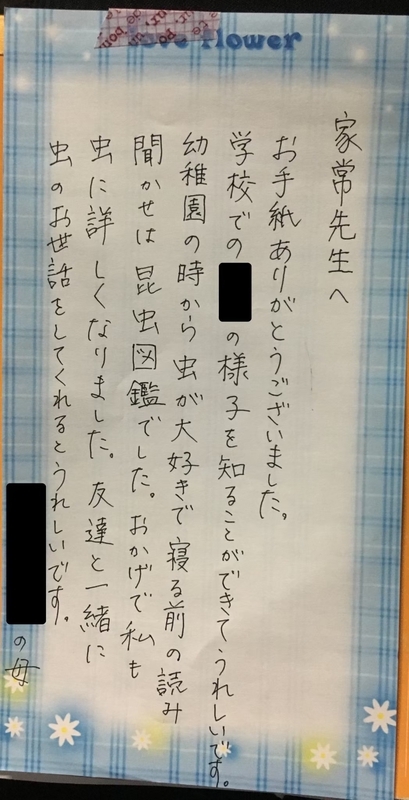 Love flower
家常先生へ
お手紙ありがとうございました。
学校での
の様子を知ることができてうれしいです。
幼稚園の時から虫が大好きで寝る前の読み
聞かせは昆虫図鑑でした。おかげで私も
虫に詳しくなりました。友達と一緒に
虫のお世話をしてくれるとうれしいです。
の母